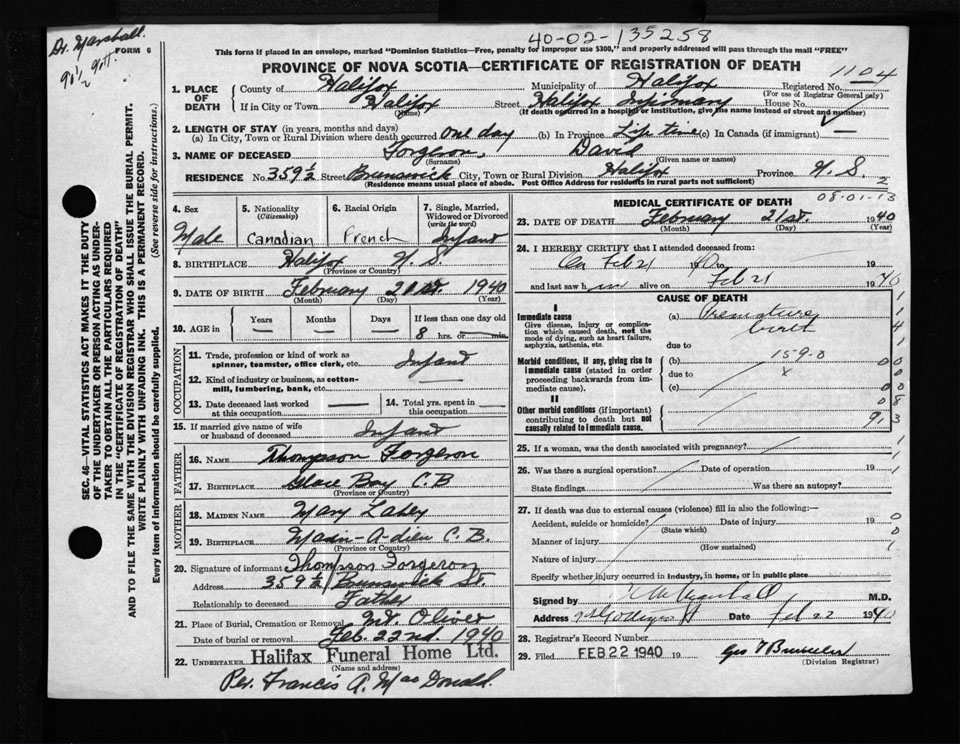 Dr. Marshall.
FORM 6
40-02-135258
This form if placed in an envelope, marked "Dominion Statistics—Free, penalty for improper use $300," and properly addressed will pass through the mail "FREE"
PROVINCE OF NOVA SCOTIA—CERTIFICATE OF REGISTRATION OF DEATH
1104
1. PLACE OF DEATH
County of Halifax Municipality of Halifax Registered No.
(For use of Registrar General only)
If in City or Town Halifax Street Halifax Infirmary House No.
(Name) (If death occurred in a hospital or institution, give the name instead of street and number)
2. LENGTH OF STAY (in years, months and days)
(a) In City, Town or Rural Division where death occurred One day (b) In Province Life time (c) In Canada (if immigrant) —
3. NAME OF DECEASED Forgeron, David
(Surname) (Given name or names)
RESIDENCE No. 359½ Street Brunswick City, Town or Rural Division Halifax Province N. S.
(Residence means usual place of abode. Post Office Address for residents in rural parts not sufficient)
2
SEC. 46—VITAL STATISTICS ACT MAKES IT THE DUTY
OF THE UNDERTAKER OR PERSON ACTING AS UNDERTAKER
TO OBTAIN ALL THE PARTICULARS REQUIRED
IN THE "CERTIFICATE OF REGISTRATION OF DEATH"
AND TO FILE THE SAME WITH THE DIVISION REGISTRAR WHO SHALL ISSUE THE BURIAL PERMIT.
WRITE PLAINLY WITH UNFADING INK. THIS IS A PERMANENT RECORD.
Every item of Information should be carefully supplied. (See reverse side for instructions.)
4. Sex
5. Nationality (Citizenship)
6. Racial Origin
7. Single, Married, Widowed or Divorced (write the word)
Male Canadian French Infant
8. BIRTHPLACE Halifax N. S
(Province or Country)
9. DATE OF BIRTH February 21st 1940
(Month) (Day) (Year)
10. AGE in Years Months Days If less than one day old
8 hrs. or min.
OCCUPATION
11. Trade, profession or kind of work as spinner, teamster, office clerk, etc. Infant
12. Kind of industry or business, as cotton-mill, lumbering, bank, etc. —
13. Date deceased last worked at this occupation —
14. Total yrs. spent in this occupation —
15. If married give name of wife or husband of deceased Infant
FATHER
16. NAME Thompson Forgeron
17. BIRTHPLACE Glace Bay C.B
(Province or Country)
MOTHER
18. MAIDEN NAME Mary Lahey
19. BIRTHPLACE Main-A-dieu C. B.
(Province or Country)
20. Signature of informant Thompson Forgeron
Address 359½ Brunswick St.
Relationship to deceased Father
21. Place of Burial, Cremation or Removal Mt. Olivet
Date of burial or removal Feb. 22nd. 1940
22. UNDERTAKER Halifax Funeral Home Ltd.
(Name and address)
Per. Francis A. MacDonald.
MEDICAL CERTIFICATE OF DEATH
08-01-13
23. DATE OF DEATH February 21st. 1940
(Month) (Day) (Year)
24. I HEREBY CERTIFY that I attended deceased from:
On Feb 21 to 19
and last saw h im alive on Feb 21 1940
CAUSE OF DEATH
I
Immediate cause
Give disease, injury or complication which caused death, not the mode of dying, such as heart failure, asphyxia, asthenia, etc.
(a) Premature birth
due to
Morbid conditions, if any, giving rise to immediate cause (stated in order proceeding backwards from immediate cause).
(b) 159-0
due to x
(c)
II
Other morbid conditions (important) contributing to death but not causally related to immediate cause.
25. If a woman, was the death associated with pregnancy?
26. Was there a surgical operation? Date of operation 19
State findings Was there an autopsy?
27. If death was due to external causes (violence) fill in also the following:—
Accident, suicide or homicide? Date of injury 19
(State which)
Manner of injury
(How sustained)
Nature of injury
Specify whether injury occurred in industry, in home, or in public place
Signed by M.D.
Address Date Feb 22 1940
28. Registrar's Record Number
29. Filed FEB 22 1940 19
(Division Registrar)